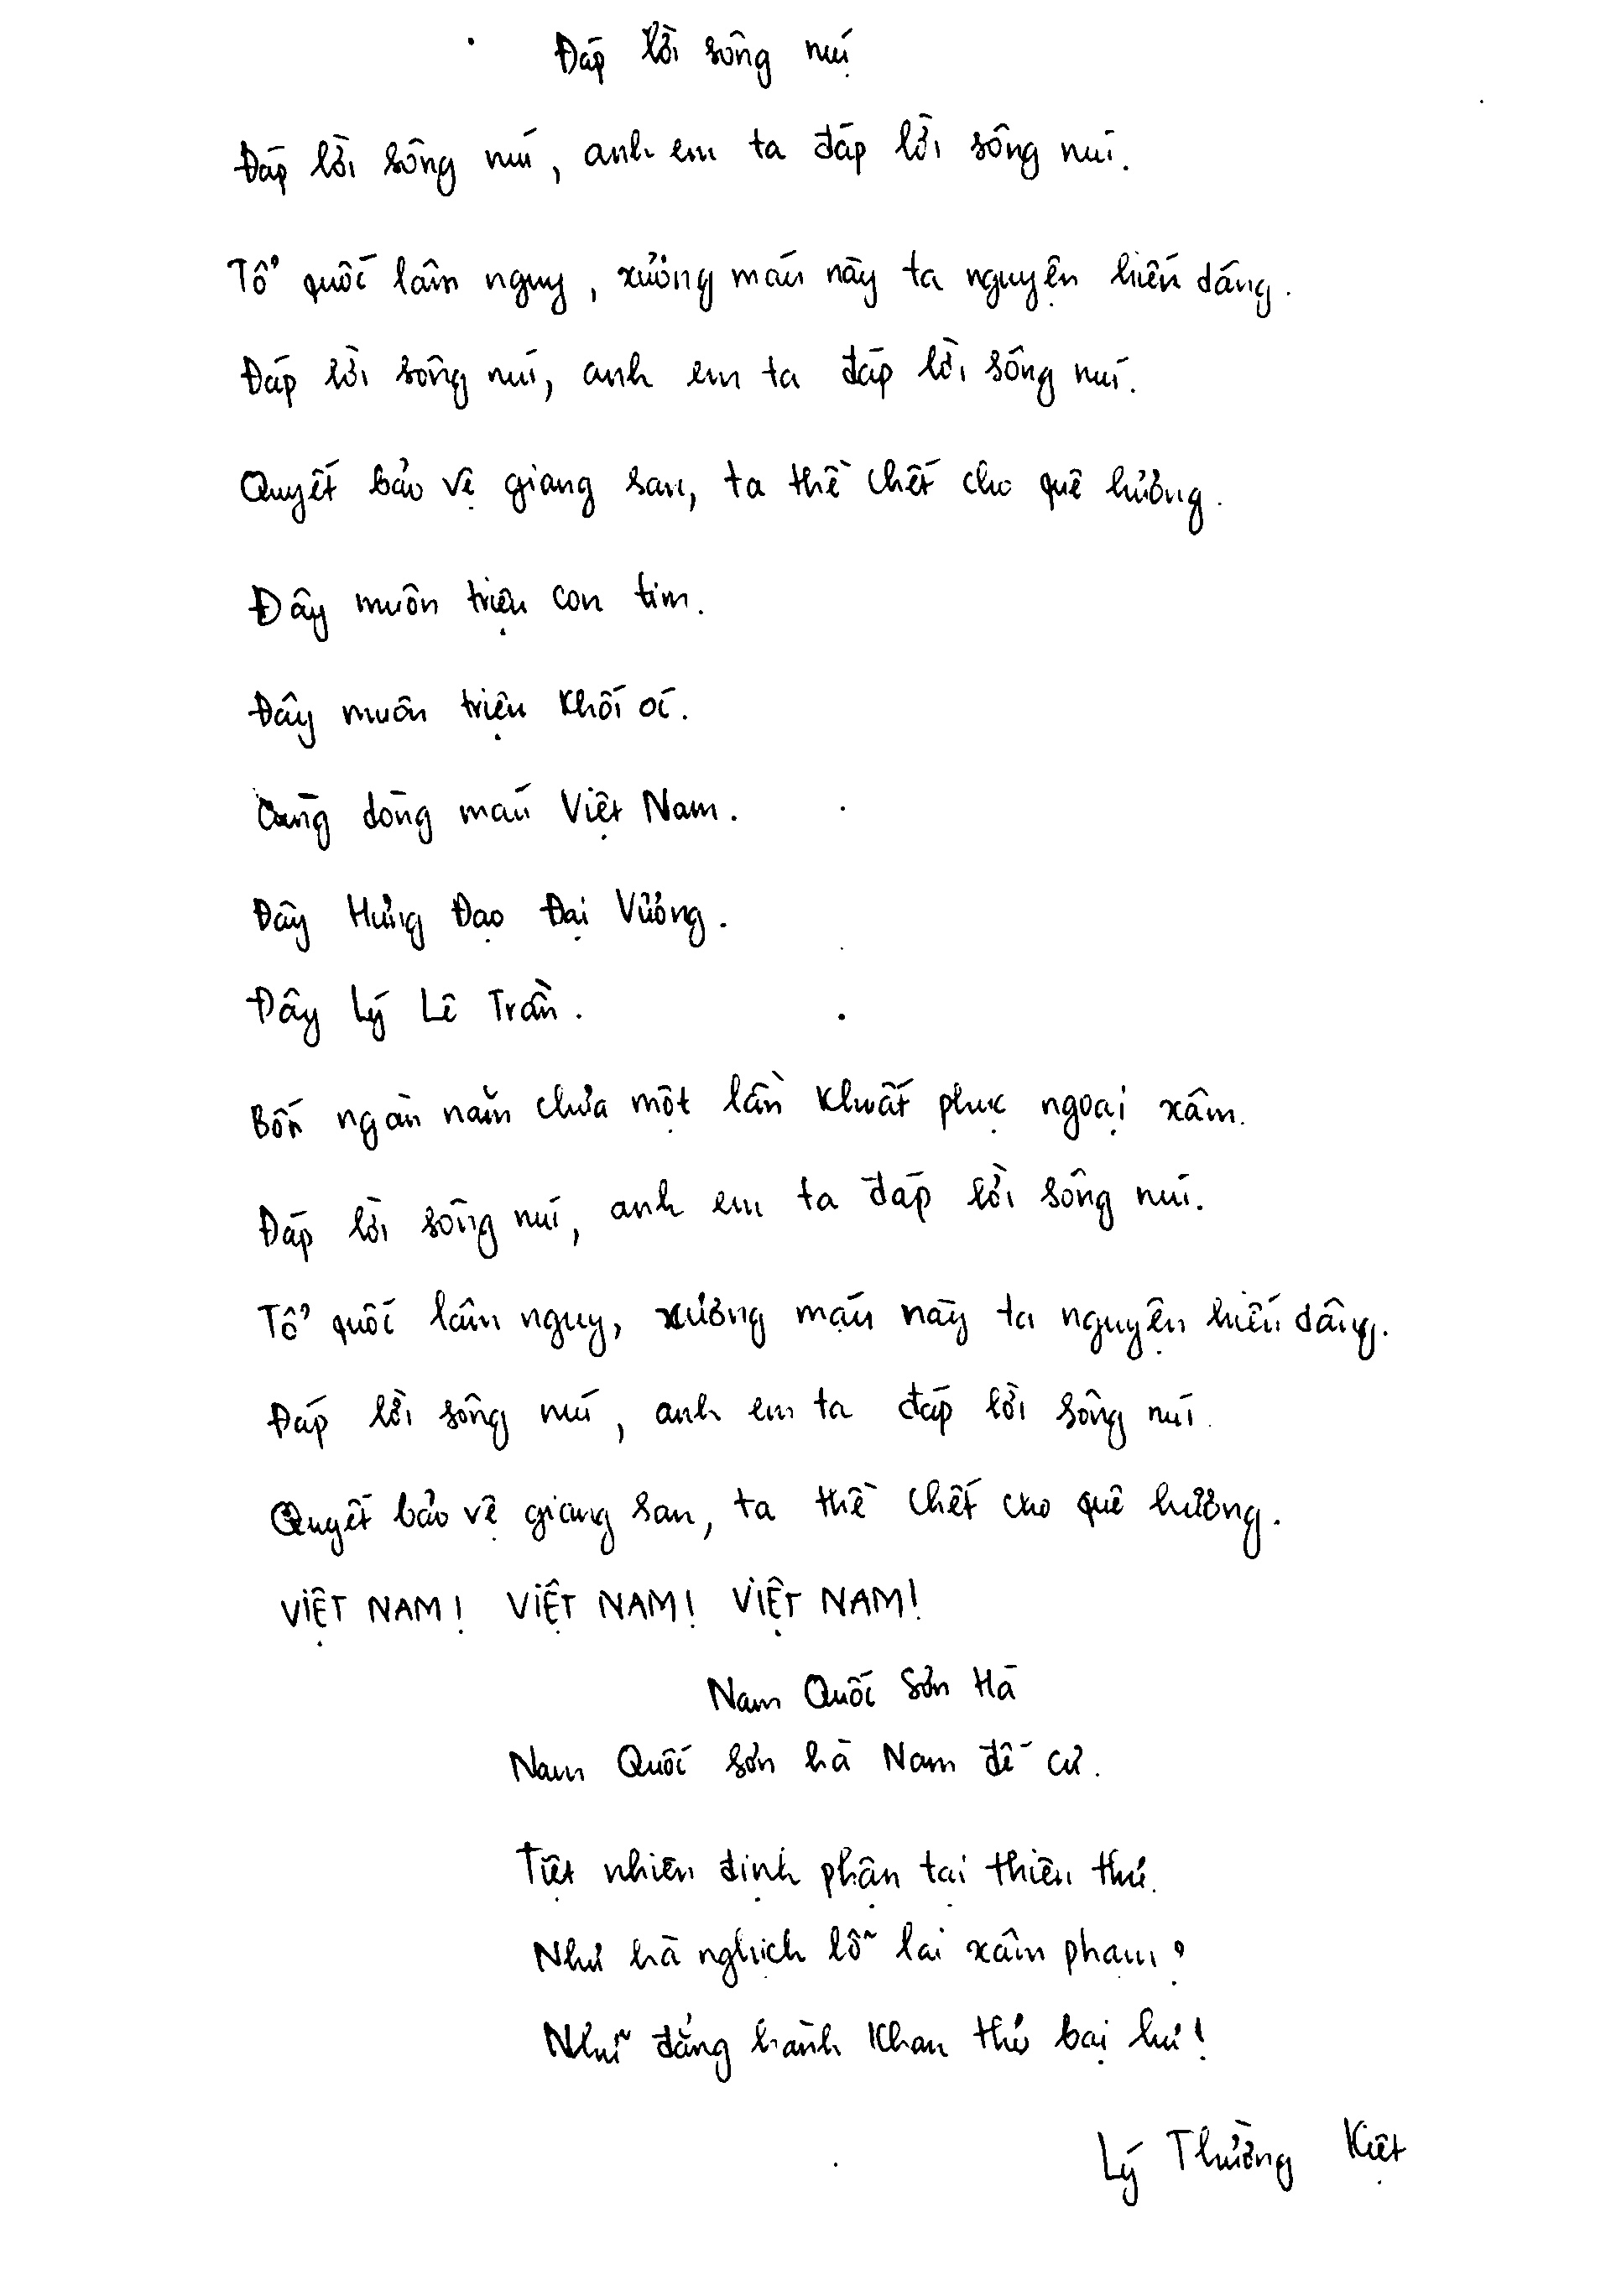 Đáp lời sông núi
Đáp lời sông núi, anh em ta đáp lời sông núi.
Tổ quốc lâm nguy, xương máu này ta nguyện hiến dâng.
Đáp lời sông núi, anh em ta đáp lời sông núi.
Quyết bảo vệ giang san, ta thề chết cho quê hương.
Đây muôn triệu con tim.
Đây muôn triệu khối óc.
Cùng dòng máu Việt Nam.
Đây Hưng Đạo Đại Vương.
Đây Lý Lê Trần.
Bốn ngàn năm chưa một lần khuất phục ngoại xâm.
Đáp lời sông núi, anh em ta đáp lời sông núi.
Tổ quốc lâm nguy, xương máu này ta nguyện hiến dâng.
Đáp lời sông núi, anh em ta đáp lời sông núi.
Quyết bảo vệ giang san, ta thề chết cho quê hương.
VIỆT NAM! VIỆT NAM! VIỆT NAM!
Nam Quốc Sơn Hà
Nam Quốc sơn hà Nam đế cư.
Tiệt nhiên định phận tại thiên thư.
Như hà nghịch lỗ lai xâm phạm?
Nhữ đẳng hành khan thủ bại hư!
Lý Thường Kiệt